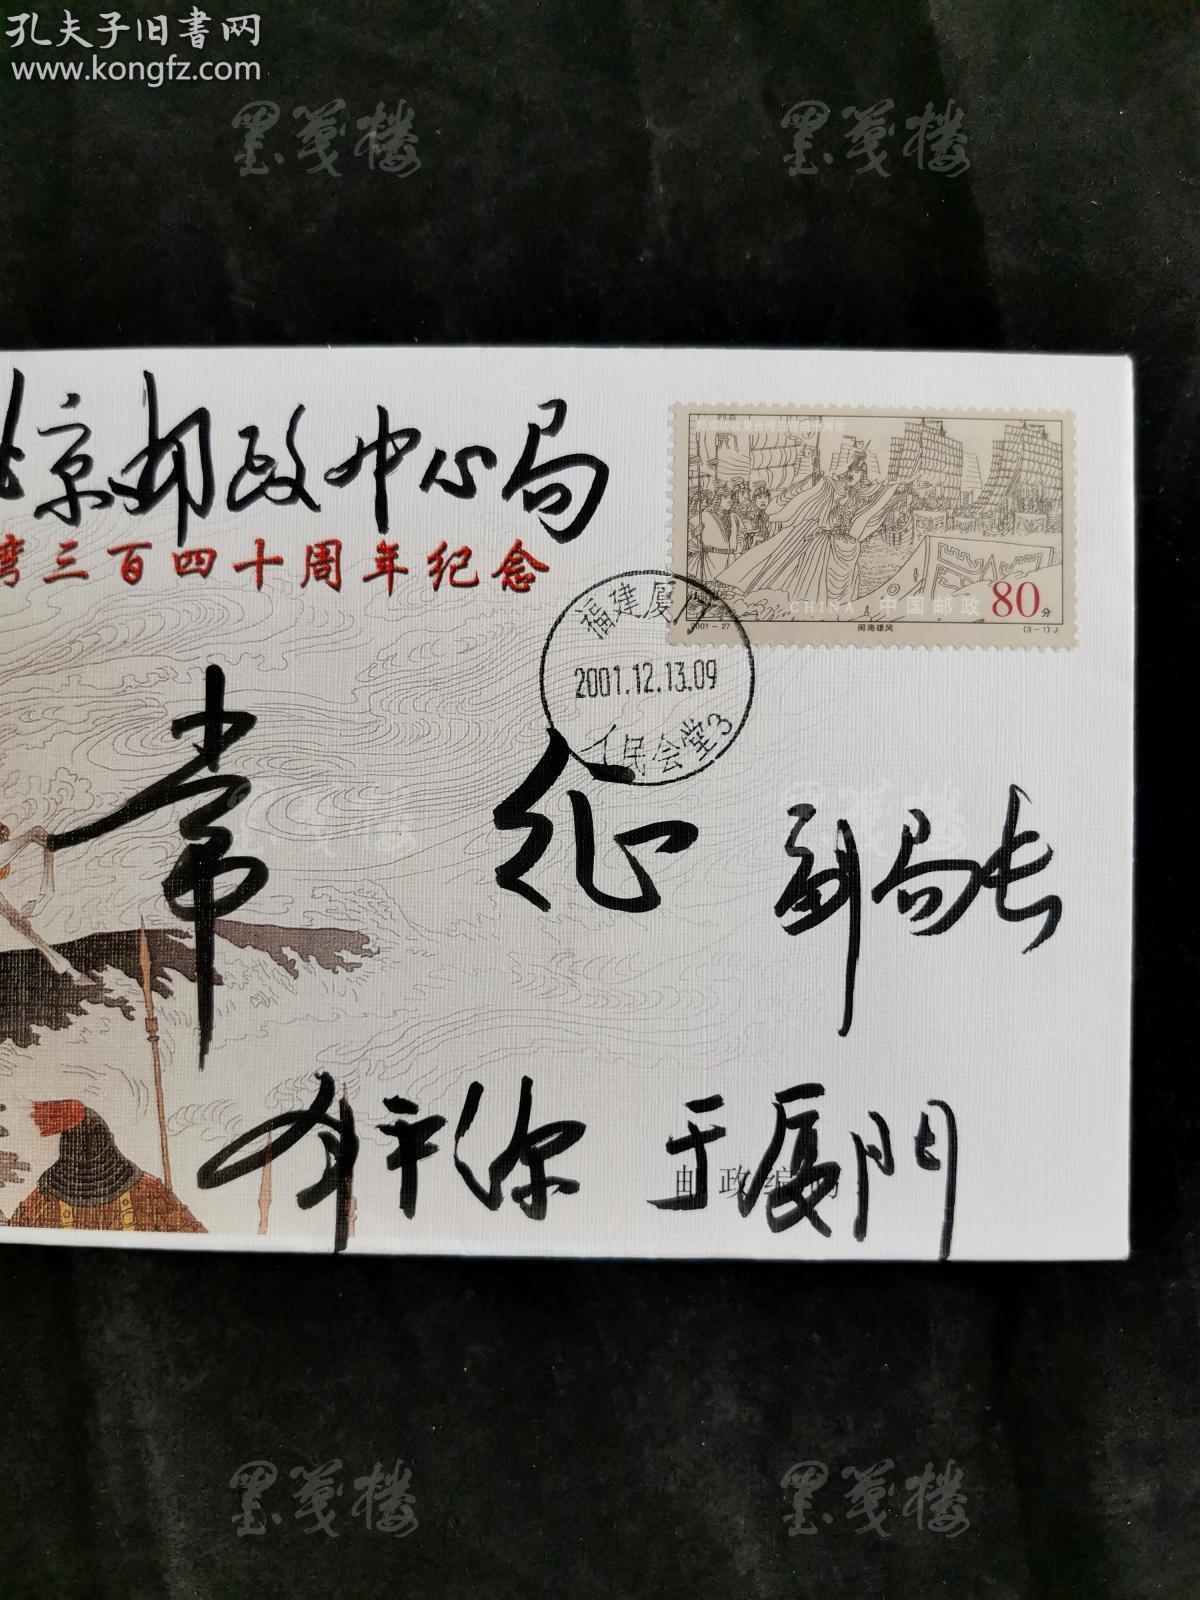 孔夫子旧書网
www.kongfz.com
墨笺楼 墨笺楼
京邮政中心局
湾三百四十周年纪念
郑成功收复台湾三百四十周年
CHINA 中国邮政 80分
2001-27 闽海雄风 (3-1)J
福建厦门
2001.12.13.09
人民会堂3
常 征 副局长
墨笺楼 墨笺楼
于厦門
邮政编码
墨笺楼 墨笺楼